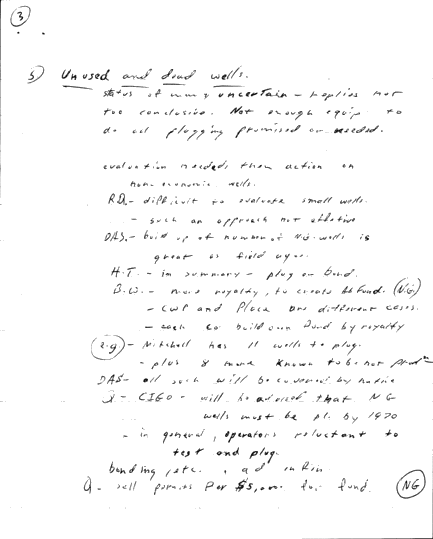 3
5) Unused and dead wells.
status of many uncertain - replies not
too conclusive. Not enough equip. to
do all plugging promised or needed.
evaluation needed; then action on
non-economic wells.
R.D. - difficult to evaluate small wells.
- such an approach not effective
DAS. - build up of number of N.G. wells is
great as field ages.
H.T. - in summary - plug or bond.
B.W. - more royalty, to create fund. (N.G)
- CWP and Placa are different cases.
- each co build own fund by royalty
(e.g) - Mitchell has 11 wells to plug.
- plus 8 more known to be not prod
DAS - all such will be covered by notice
- CIGO - will be advised that NG
wells must be pl. by 1970
- in general, operators reluctant to
test and plug.
bonding, etc.
Q - sell permits for $5,000 for fund. (NG)